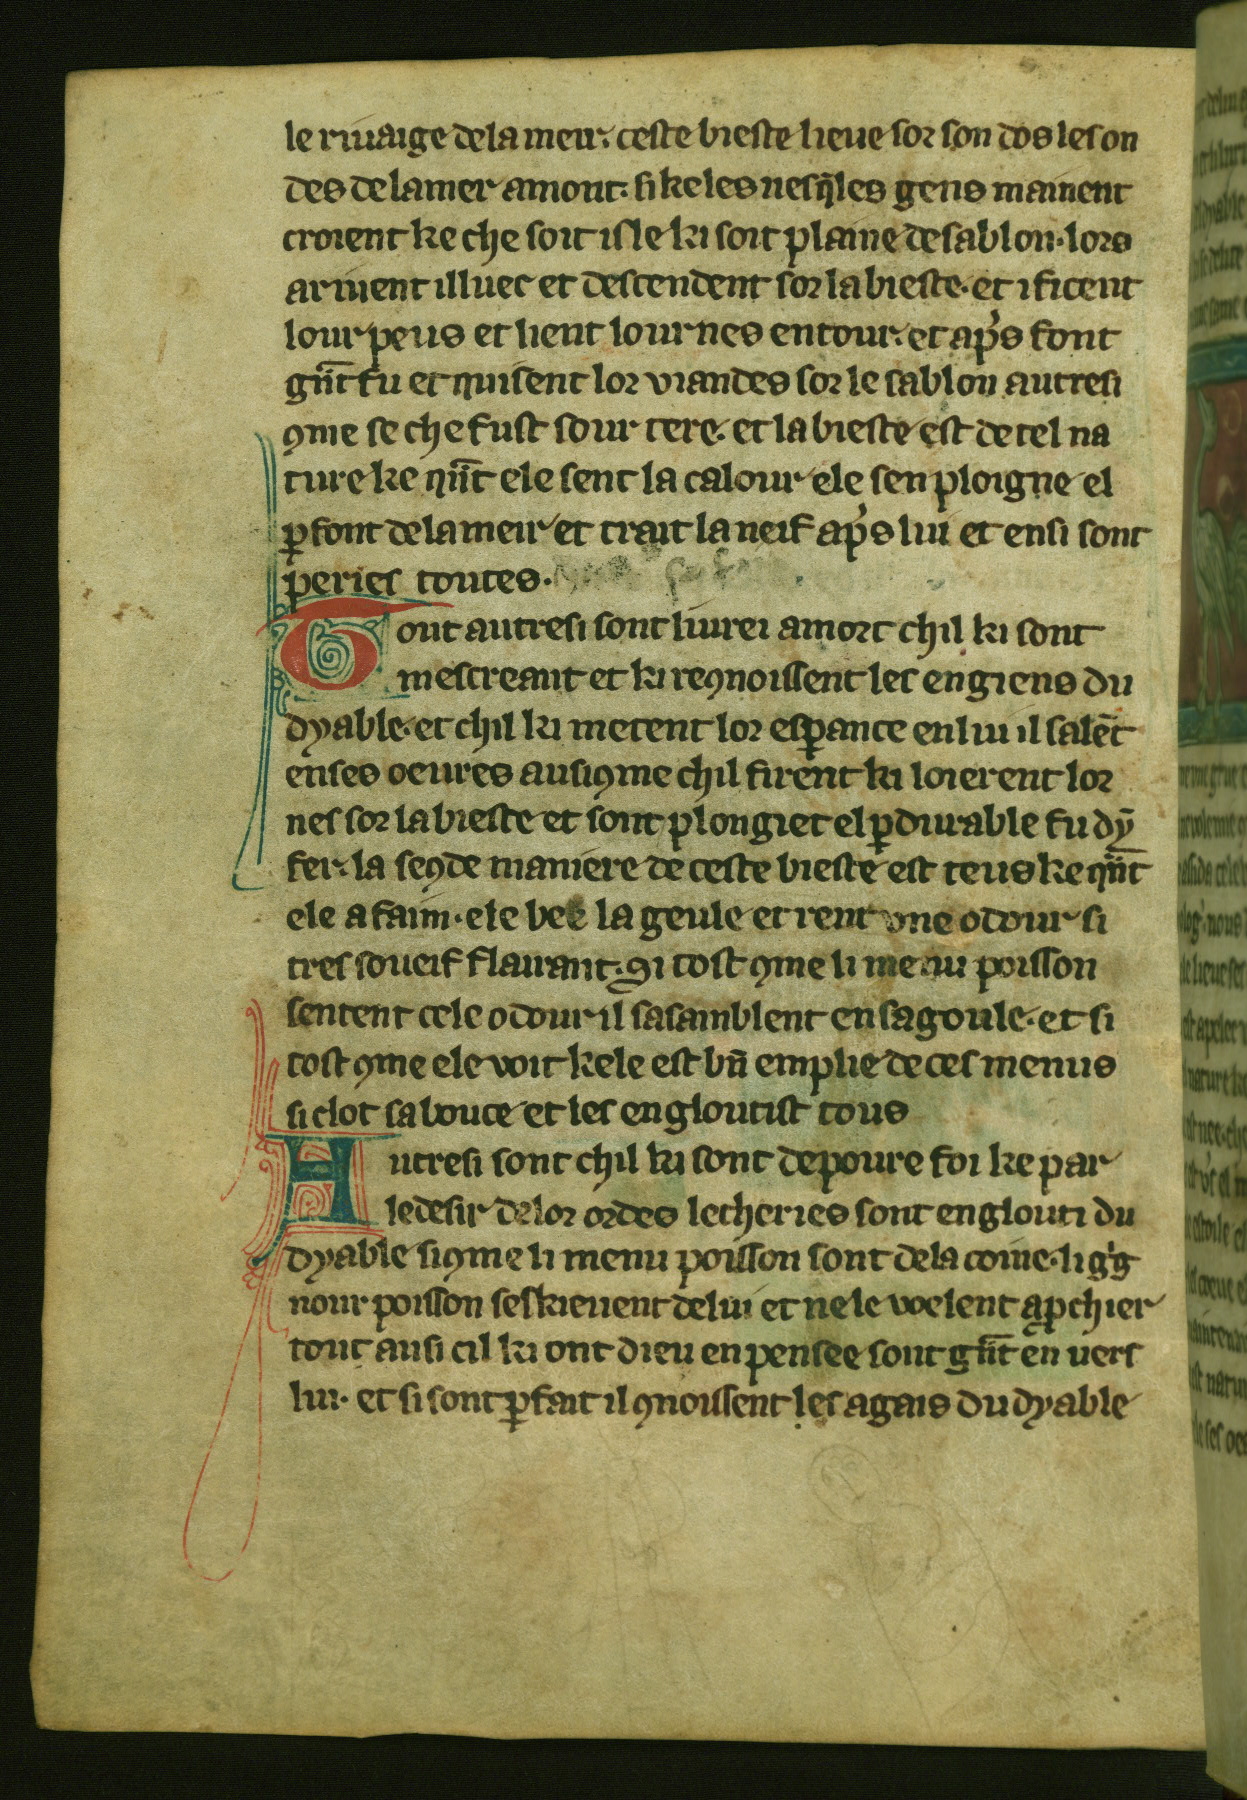 le riuaige de la meir. ceste bieste lieue sor son dos les on
des de la mer amont. si ke les nes q̄les gens mainent
croient ke che soit isle ki soit plaine de sablon. lors
ariuent illuec et descendent sor la bieste. et i ficent
lour peus et lient lour nes entour. et ap̾s font
gñt fu et quisent lor viandes sor le sablon autresi
ꝯme se che fust sour tere. et la bieste est de tel na
ture ke qñt ele sent la calour ele sen ploigne el
ꝑfont de la meir et trait la neif ap̾s lui et ensi sont
peries toutes.
Tout autresi sont liurei a mort chil ki sont
mescreant et ki reꝯnoissent les engiens du
dyable. et chil ki metent lor esꝑance en lui il salēt
en ses oeures ausi ꝯme chil firent ki loierent lor
nes sor la bieste et sont plongiet el ꝑdurable fu dȳ
fer. la seꝯde maniere de ceste bieste est teus ke qñt
ele a faim. ele bee la geule et rent vne odour si
tres soueif flairant. ꝯi tost ꝯme li menu poisson
sentent cele odour il sasamblent en sa goule. et si
tost ꝯme ele voit kele est bñ emplie de ces menus
si clot sa bouce et les engloutist tous
Autresi sont chil ki sont de poure foi ke par
le desir de lor ordes lecheries sont englouti du
dyable si ꝯme li menu poisson sont de la coine. li gͥg
nour poisson seskieuent de lui et ne le voelent apchier
tout ausi cil ki ont dieu en pensee sont gñt en uers
lui. et si sont ꝑfait il ꝯnoissent les agais du dyable